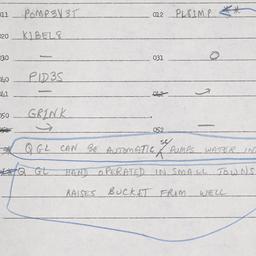 011 POMP3V3T 012 PL8IMP
020 KIBEL8
030 — 031 O
040 PID3S
041 —
050 GRINK
052 —
Q GL CAN BE AUTOMATIC, PUMPS WATER IN
Q GL HAND OPERATED IN SMALL TOWNS
RAISES BUCKET FROM WELL